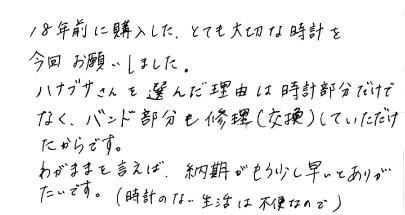 18年前に購入した、とても大切な時計を
今回お願いしました。
ハナブサさんを選んだ理由は時計部分だけで
なく、バンド部分も修理(交換)していただけ
たからです。
わがままを言えば、納期がもう少し早いとありが
たいです。(時計のない生活は不便なので)